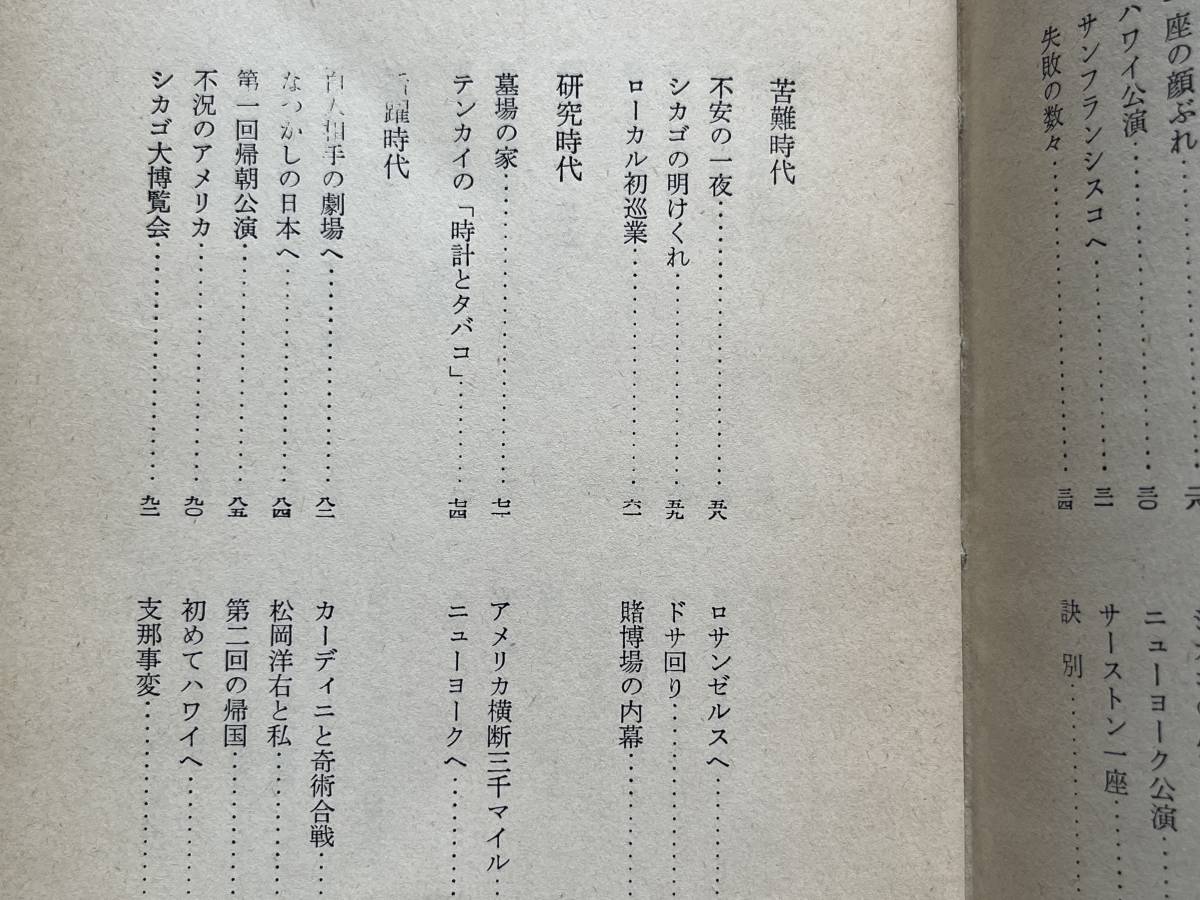 座の顔ぶれ
ハワイ公演……三〇
サンフランシスコへ……三一
失敗の数々……三四
ニューヨーク公演……
サーストン一座……
訣別……
苦難時代
不安の一夜……五八
シカゴの明けくれ……五九
ローカル初巡業……六一
ロサンゼルスへ……
ドサ回り……
賭博場の内幕……
研究時代
墓場の家……七一
テンカイの「時計とタバコ」……七四
アメリカ横断三千マイル……
ニューヨークへ……
躍時代
白人相手の劇場へ……八二
なつかしの日本へ……八四
第一回帰朝公演……八五
不況のアメリカ……九〇
シカゴ大博覧会……九二
カーディニと奇術合戦……
松岡洋右と私……
第二回の帰国……
初めてハワイへ……
支那事変……